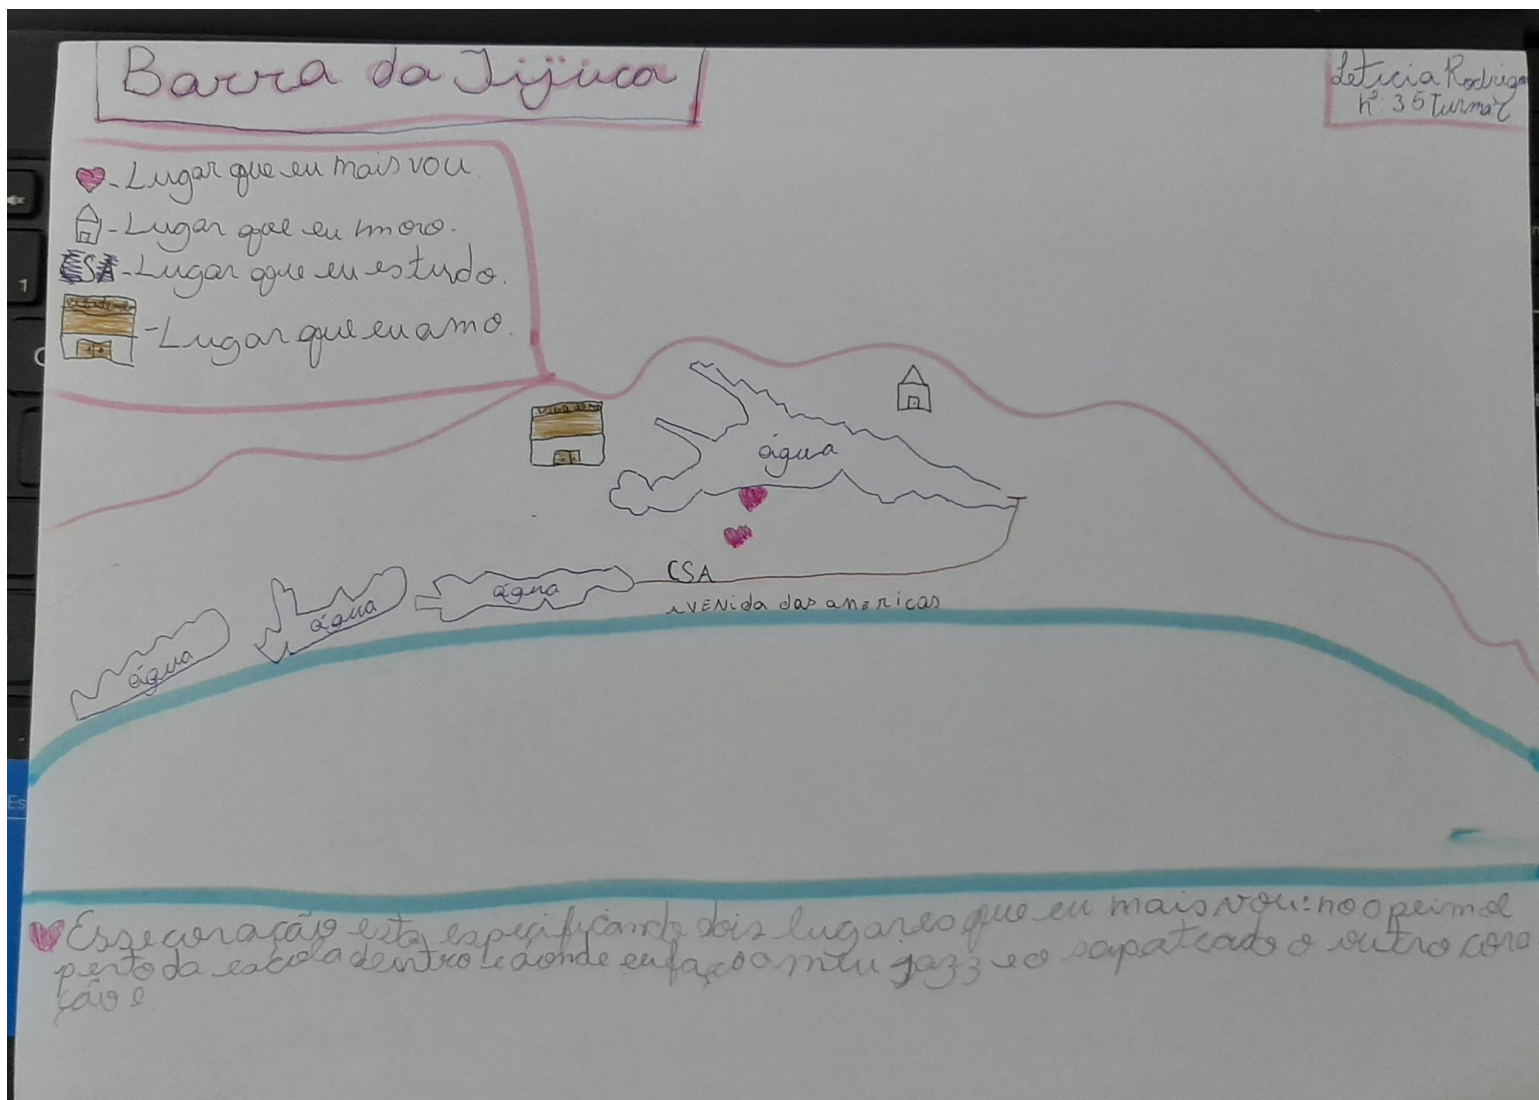 Barra da Tijuca
Leticia Rodrig
nº: 35 Turma:
- Lugar que eu mais vou.
- Lugar que eu moro.
CSA - Lugar que eu estudo.
- Lugar que eu amo.
água
CSA
água
água
água
Avenida das américas
Esse coração esta especificando dois lugares que eu mais vou: no o
perto da escola dentro é aonde eu faço o meu jazz e o sapateado o outro cora
ção é